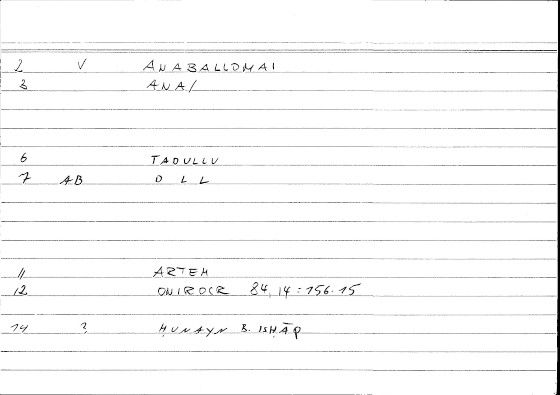 2 V ANABALLOMAI
3 ANA/
6 TADULLU
7 AB D L L
11 ARTEM
12 ONIROCR 84,14:156.15
14 ? ḤUNAYN B. ISḤĀQ